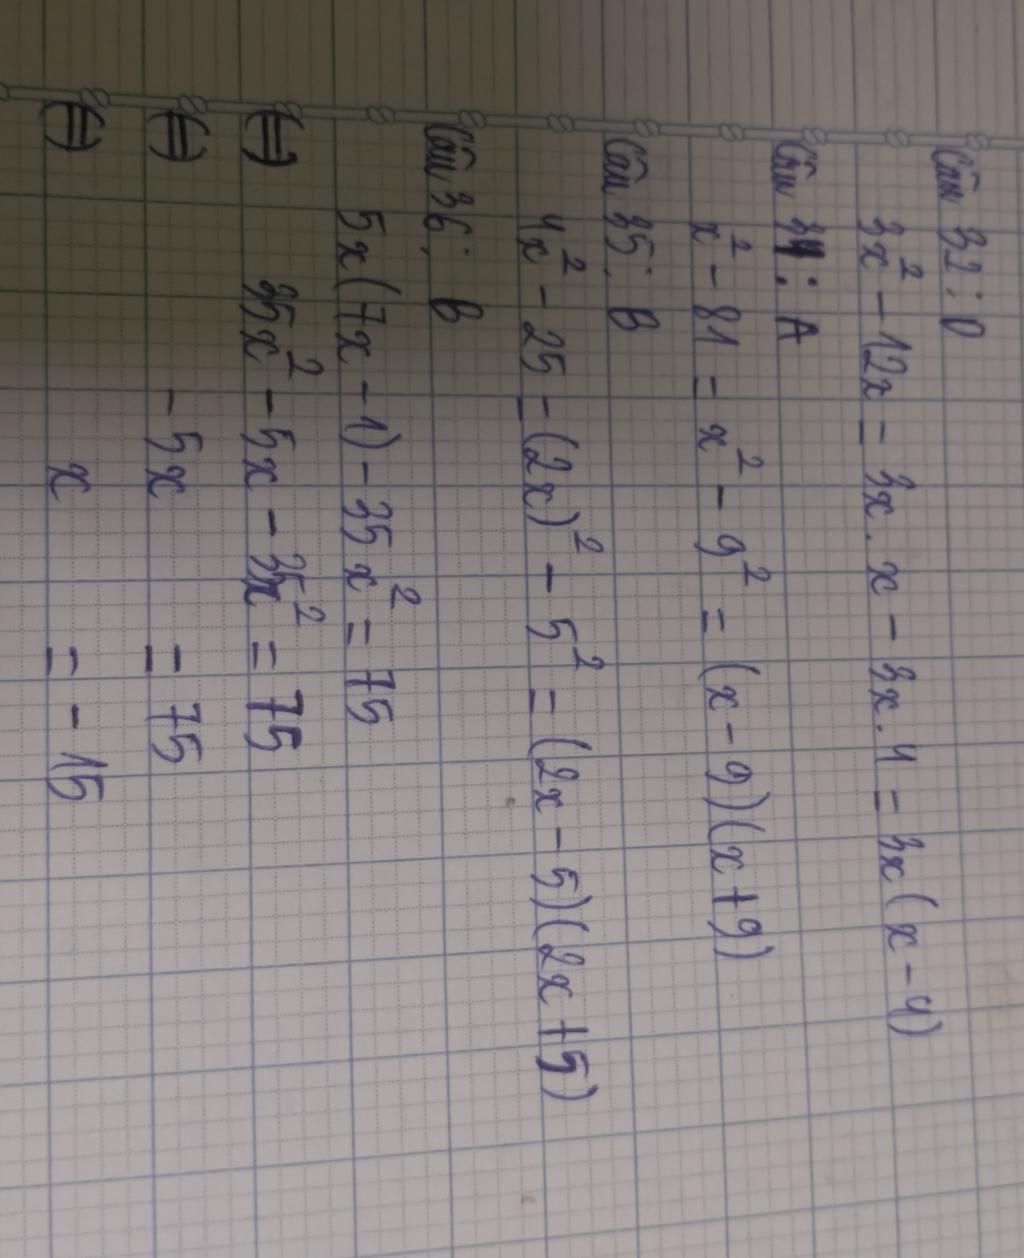 Câu 32: D
3x² - 12x = 3x.x - 3x.4 = 3x(x - 4)
Câu 34: A
x² - 81 = x² - 9² = (x - 9)(x + 9)
Câu 35: B
4x² - 25 = (2x)² - 5² = (2x - 5)(2x + 5)
Câu 36: B
5x(7x - 1) - 35x² = 75
⇔ 35x² - 5x - 35x² = 75
⇔ - 5x = 75
⇔ x = - 15